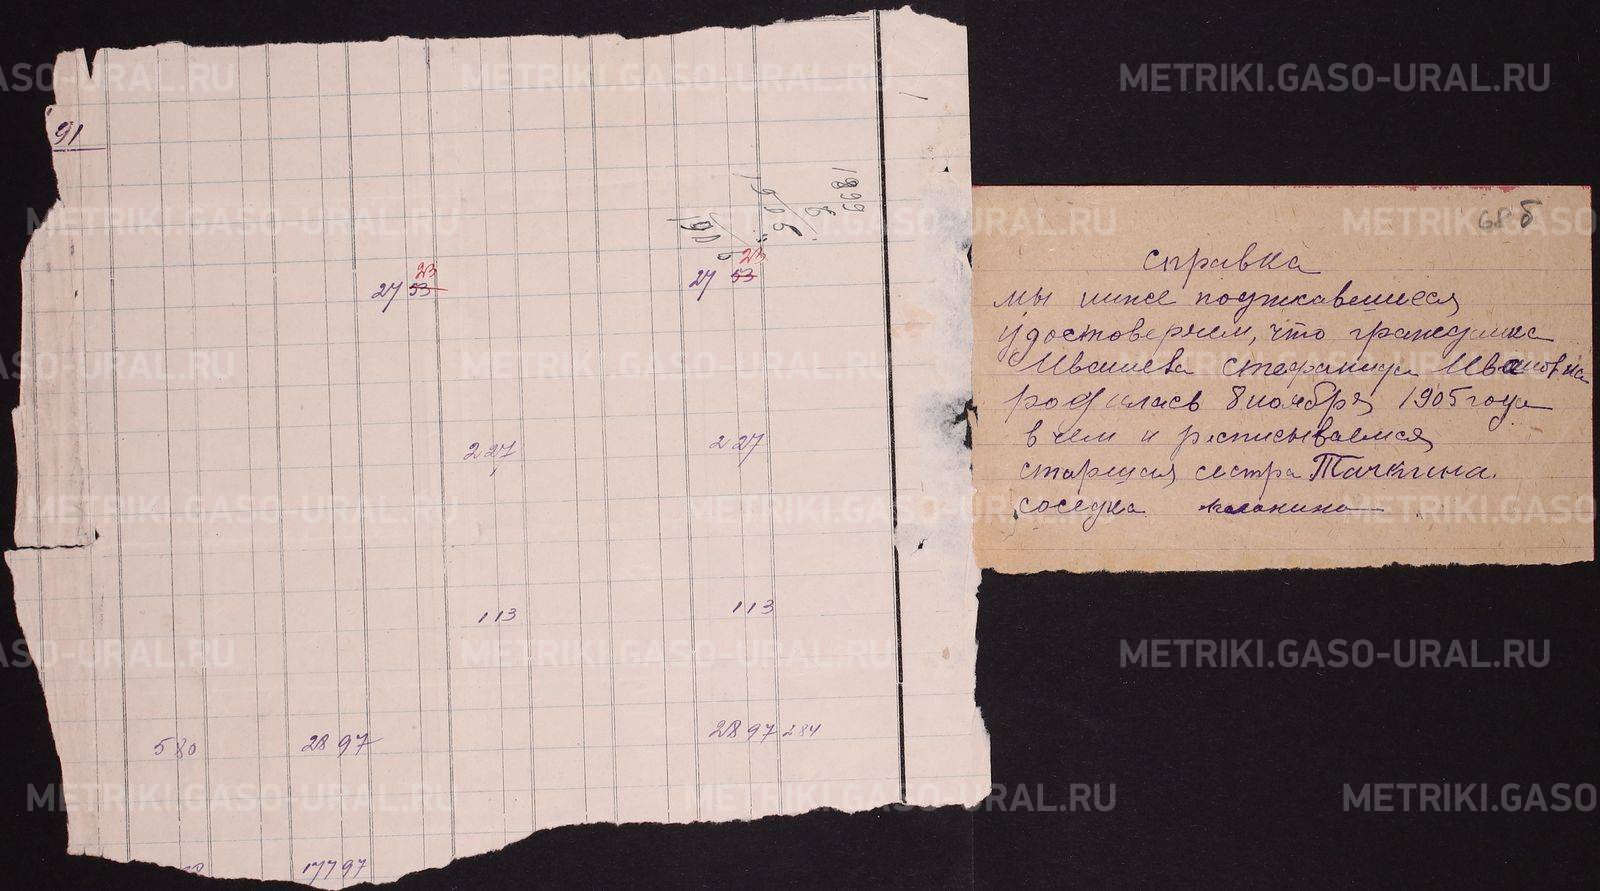 91
1899
1905
1900
23
27 53
23
27 53
227
227
113
113
580
2897
2897 284
17797
68б
Справка
мы ниже подписавшиеся
удостоверяем, что гражданка
Ивашева Степанида Ивановна
родилась 8 ноября 1905 года
в чем и расписываемся
старшая сестра Тачкина.
соседка
METRIKI.GASO-URAL.RU